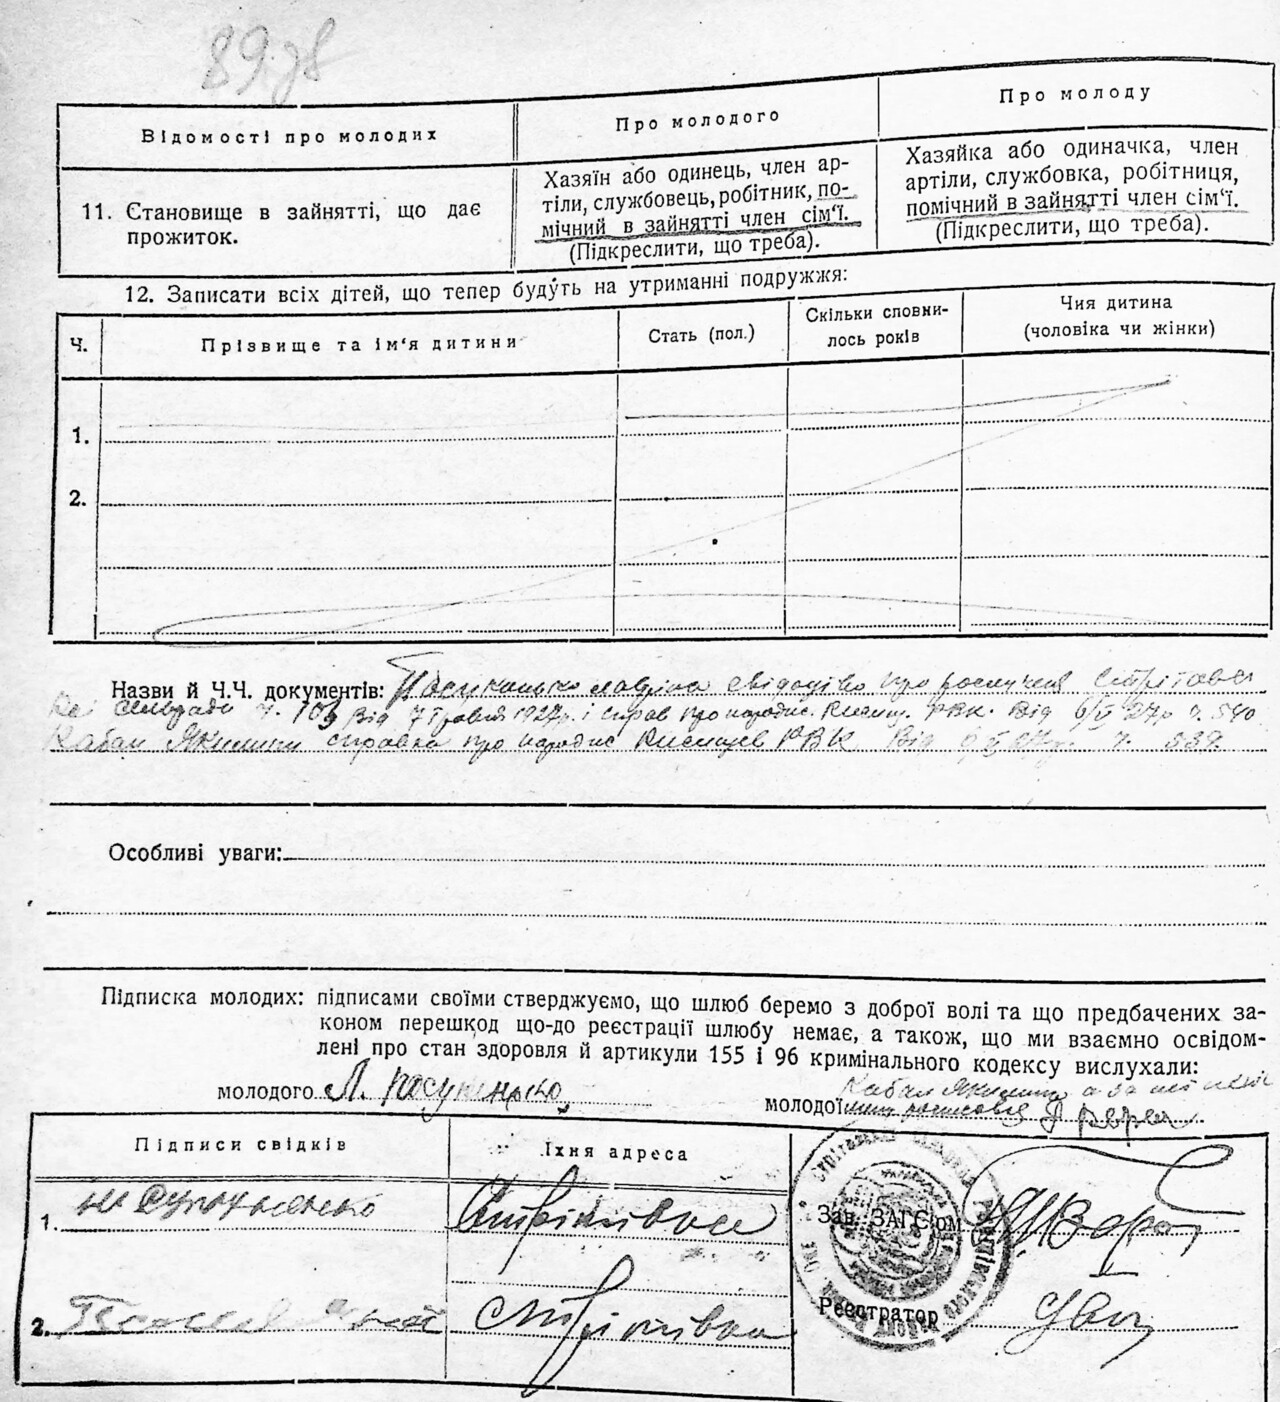 89 зв
Відомості про молодих
Про молодого
Про молоду
11. Становище в зайнятті, що дає
прожиток.
Хазяїн або одинець, член ар-
тілі, службовець, робітник, по-
мічний в зайнятті член сім'ї.
(Підкреслити, що треба).
Хазяйка або одиначка, член
артілі, службовка, робітниця,
помічний в зайнятті член сім'ї.
(Підкреслити, що треба).
12. Записати всіх дітей, що тепер будуть на утриманні подружжя:
Ч.
Прізвище та ім'я дитини
Стать (пол.)
Скільки сповни-
лось років
Чия дитина
(чоловіка чи жінки)
1.
2.
Назви й Ч.Ч. документів: Пасуканько свідоцтво про
сільради ч. від 7 травня 1927р. і справ про народж. РВК. від ч. 540
Кабан справка про народж РВК від ч. 539.
Особливі уваги:
Підписка молодих: підписами своїми стверджуємо, що шлюб беремо з доброї волі та що предбачених за-
коном перешкод що-до реєстрації шлюбу немає, а також, що ми взаємно освідом-
лені про стан здоровля й артикули 155 і 96 кримінального кодексу вислухали:
молодого Л. Пасуканько
Кабан а за неї
молодої
Підписи свідків
Їхня адреса
1.
Стрітівка
Зав. ЗАГС'ом
2.
Стрітівка
Реєстратор